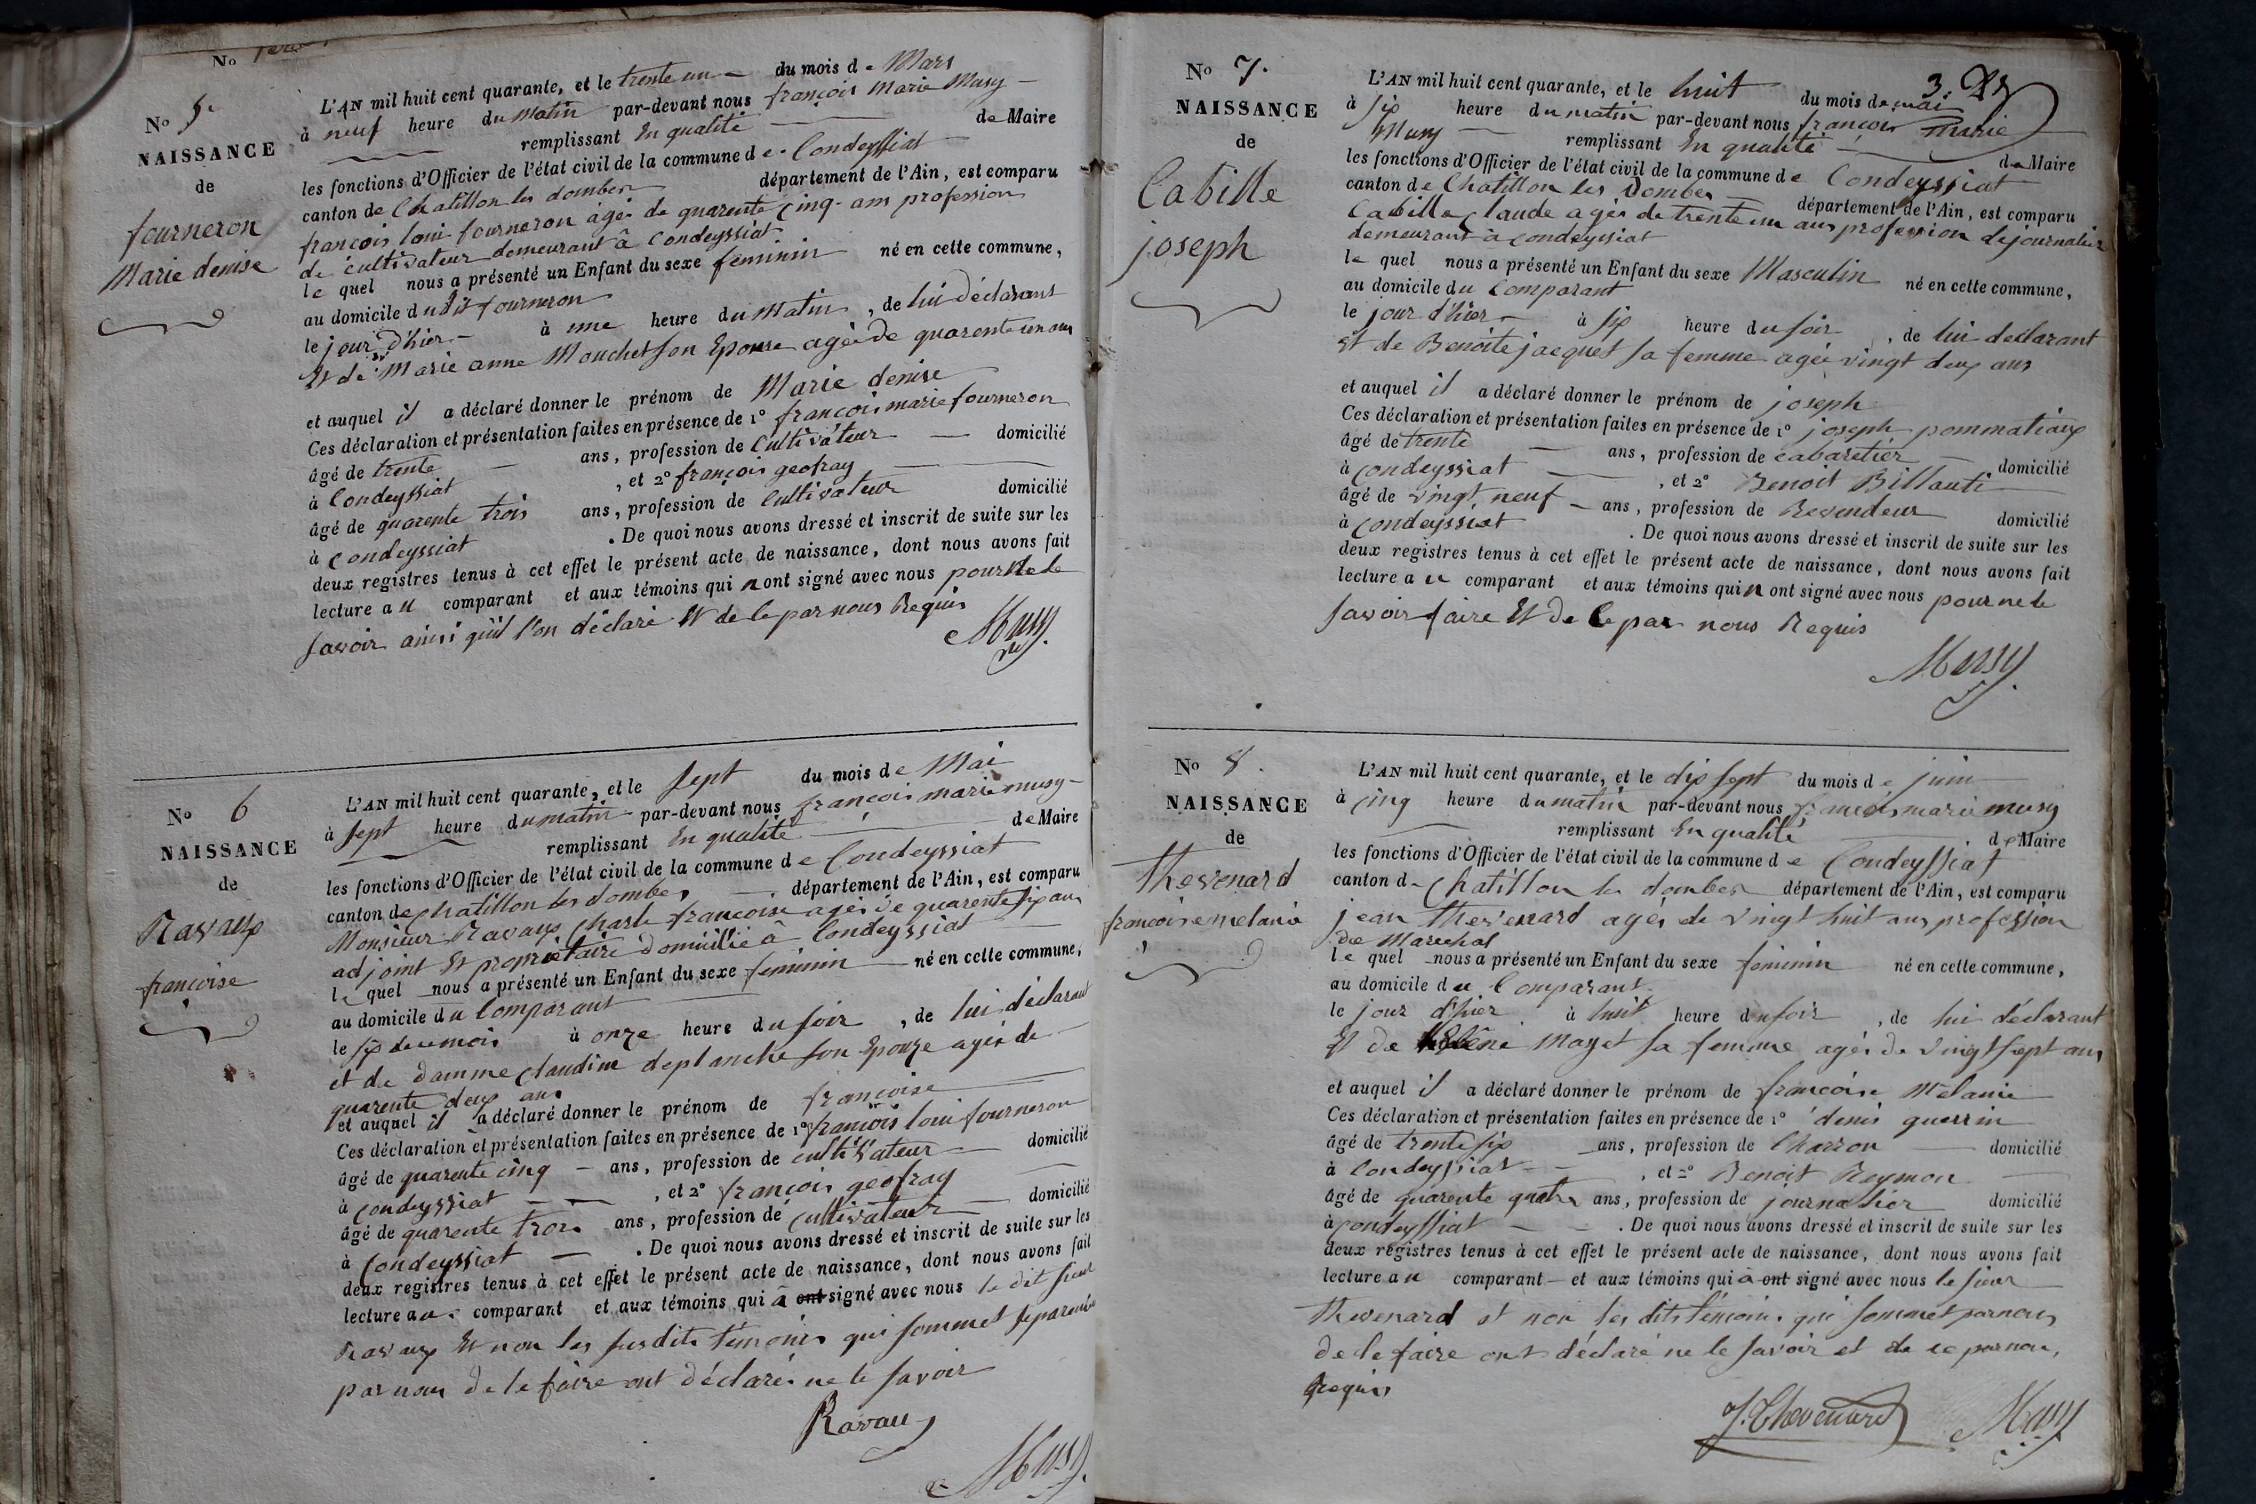 No
No 5.
NAISSANCE
de
fourneron
Marie denise
L'AN mil huit cent quarante, et le trente un du mois de Mars
à neuf heure du matin par-devant nous françois Marie Musy
remplissant En qualité de Maire
les fonctions d'Officier de l'état civil de la commune de Condeyssiat
canton de Chatillon les dombes département de l'Ain, est comparu
françois loui fourneron agée de quarente cinq ans profession
de cultivateur demeurant â Condeyssiat
le quel nous a présenté un Enfant du sexe feminin né en cette commune,
au domicile du dit fourneron
le jour d'hier à une heure du Matin, de lui déclarant
Et de Marie anne Mouchet son Epouse agée de quarente un ans
et auquel il a déclaré donner le prénom de Marie denise
Ces déclaration et présentation faites en présence de 1° françois marie fourneron
âgé de trente ans, profession de Cultivateur domicilié
à Condeyssiat, et 2° françois geofray
âgé de quarente trois ans, profession de Cultivateur domicilié
à Condeyssiat. De quoi nous avons dressé et inscrit de suite sur les
deux registres tenus à cet effet le présent acte de naissance, dont nous avons fait
lecture au comparant et aux témoins qui n ont signé avec nous pour ne le
savoir ainsi quil l'on déclaré Et de le par nous Requis
Musy
No 6
NAISSANCE
de
Ravaux
francoise
L'AN mil huit cent quarante, et le sept du mois de Mai
à sept heure du matin par-devant nous françois marie musy
remplissant En qualité de Maire
les fonctions d'Officier de l'état civil de la commune de Condeyssiat
canton de chatillon les dombes département de l'Ain, est comparu
Monsieur Ravaux Charle francoise agés de quarente six ans
adjoint Et proprietaire domicilié â Condeyssiat
le quel nous a présenté un Enfant du sexe feminin né en cette commune,
au domicile du Comparant
le six de ce mois à onze heure du soir, de lui déclarant
et de damme claudine deplanche son Epouze agés de
quarente deux ans
et auquel il a déclaré donner le prénom de francoise
Ces déclaration et présentation faites en présence de 1° françois loui fourneron
âgé de quarente cinq ans, profession de cultivateur domicilié
à condeyssiat, et 2° françois geofray
âgé de quarente trois ans, profession de cultivateur domicilié
à Condeyssiat. De quoi nous avons dressé et inscrit de suite sur les
deux registres tenus à cet effet le présent acte de naissance, dont nous avons fait
lecture au comparant et aux témoins qui a ont signé avec nous le dit sieur
Ravaux Et non les susdits témoins qui sommet
par nous de le faire ont déclarés ne le savoir
Ravaux
Musy
3.
No 7.
NAISSANCE
de
Cabille
joseph
L'AN mil huit cent quarante, et le huit du mois de mai
à six heure du matin par-devant nous françois marie
Musy remplissant En qualité de Maire
les fonctions d'Officier de l'état civil de la commune de Condeyssiat
canton de Chatillon les Dombes département de l'Ain, est comparu
Cabille Claude agés de trente un ans profession de journalier
demeurant à condeyssiat
le quel nous a présenté un Enfant du sexe Masculin né en cette commune,
au domicile du Comparant
le jour d'hier à six heure du soir, de lui declarant
et de Benoite jacquet sa femme agée vingt deux ans
et auquel il a déclaré donner le prénom de joseph
Ces déclaration et présentation faites en présence de 1° joseph pommatiaux
âgé de trente ans, profession de cabaretier domicilié
à condeyssiat, et 2° Benoit Billauti
âgé de vingt neuf ans, profession de Revendeur domicilié
à condeyssiat. De quoi nous avons dressé et inscrit de suite sur les
deux registres tenus à cet effet le présent acte de naissance, dont nous avons fait
lecture au comparant et aux témoins qui n ont signé avec nous pour ne le
savoir faire Et De le par nous Requis
Musy
No 8.
NAISSANCE
de
thevenard
francoise melanie
L'AN mil huit cent quarante, et le dix sept du mois de juin
à cinq heure du matin par-devant nous francois marie musy
remplissant En qualité de Maire
les fonctions d'Officier de l'état civil de la commune de Condeyssiat
canton de Chatillon les dombes département de l'Ain, est comparu
jean thevenard agés de vingt huit ans profession
de Marechal
le quel nous a présenté un Enfant du sexe feminin né en cette commune,
au domicile du Comparant
le jour d'hier à huit heure du soir, de lui déclarant
Et de Mayet sa femme agés de vingt sept ans
et auquel il a déclaré donner le prénom de francoise Mélanie
Ces déclaration et présentation faites en présence de 1° denis guerrin
âgé de trente six ans, profession de Charron domicilié
à Condeyssiat, et 2° Benoit Reymon
âgé de quarente quatre ans, profession de journalier domicilié
à condeyssiat. De quoi nous avons dressé et inscrit de suite sur les
deux registres tenus à cet effet le présent acte de naissance, dont nous avons fait
lecture au comparant et aux témoins qui a ont signé avec nous le sieur
thevenard et non les dits témoins qui sommet par nous
de le faire ont déclaré ne le savoir et de ce par nous
Requis
J. Thevenard
Musy